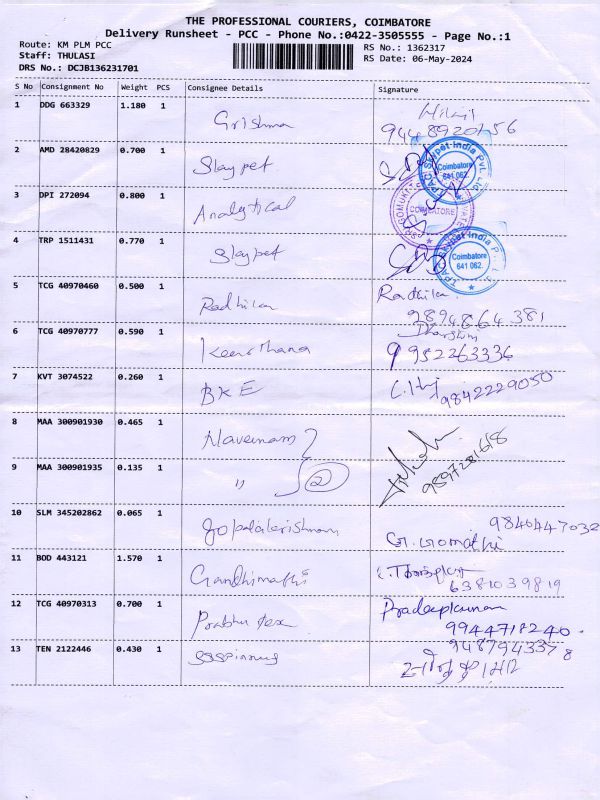 THE PROFESSIONAL COURIERS, COIMBATORE
Delivery Runsheet - PCC - Phone No.:0422-3505555 - Page No.:1
Route: KM PLM PCC
RS No.: 1362317
Staff: THULASI
RS Date: 06-May-2024
DRS No.: DCJB136231701
S No Consignment No Weight PCS Consignee Details Signature
1 DDG 663329 1.180 1 Grishma
2 AMD 28420829 0.700 1 Slaypet
Slaypet India Pvt. Ltd. Coimbatore 641 062.
3 DPI 272094 0.800 1 Analytical
COIMBATORE
4 TRP 1511431 0.770 1 Slaypet
Slaypet India Coimbatore 641 062.
5 TCG 40970460 0.500 1 Radhika Radhika.
9894864381
6 TCG 40970777 0.590 1 Keerthana
9952263336
7 KVT 3074522 0.260 1 BKE 9842229050
8 MAA 300901930 0.465 1
9 MAA 300901935 0.135 1 " 2
10 SLM 345202862 0.065 1 Gopalakrishnan 9840447032
G. Gomathi
11 BOD 443121 1.570 1 Gandhimathi
6381039819
12 TCG 40970313 0.700 1 Prabhu tex Pradeepkumar
9944718240.
13 TEN 2122446 0.430 1 9487943378